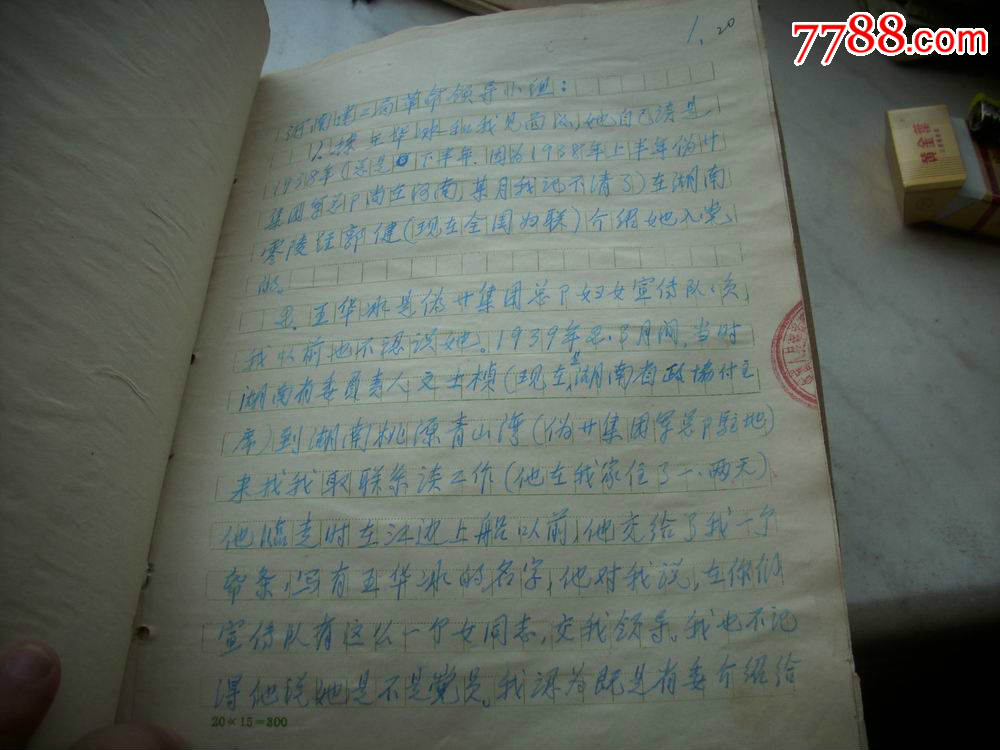 7788.com
1.20
革命领导小组:
1.据王华冰和我见面后,她自己谈是
1938年(还是下半年,因为1938年上半年伪廿
集团军总P尚在河南,某月我记不清了)在湖南
零陵经郭健(现在全国妇联)介绍她入党
的。
王华冰是伪廿集团总P妇女宣传队员,
我以前也不认识她。1939年2.3月间,当时
湖南省委负责人文士桢(现在湖南省政协付主
席)到湖南桃源青山湾(伪廿集团军总P驻地)
来找我取联系谈工作(他在我家住了一、两天)
他临走时在江边上船以前,他交给了我一个
帋条,写有王华冰的名字,他对我说,在你们
宣传队有这么一个女同志,交我领导。我也不记
得他说她是不是党员。我认为既是省委介绍给
20×15=300
黄金叶